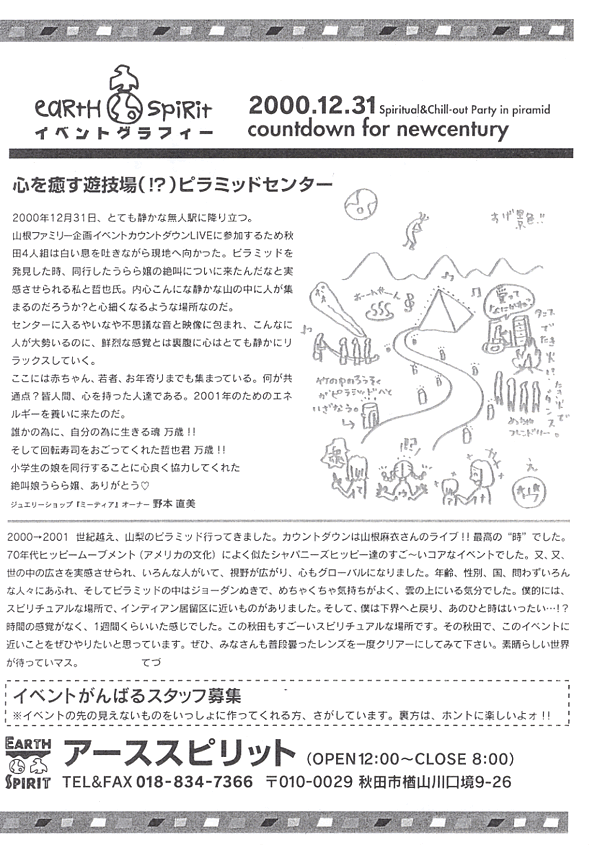 EARTH SPIRIT
イベントグラフィー
2000.12.31 Spiritual&Chill-out Party in piramid
countdown for newcentury
心を癒す遊技場(!?)ピラミッドセンター
2000年12月31日、とても静かな無人駅に降り立つ。
山根ファミリー企画イベントカウントダウンLIVEに参加するため秋
田4人組は白い息を吐きながら現地へ向かった。ピラミッドを
発見した時、同行したうらら嬢の絶叫についに来たんだなと実
感させられる私と哲也氏。内心こんにな静かな山の中に人が集
まるのだろうか?と心細くなるような場所なのだ。
センターに入るやいなや不思議な音と映像に包まれ、こんなに
人が大勢いるのに、鮮烈な感覚とは裏腹に心はとても静かにリ
ラックスしていく。
ここには赤ちゃん、若者、お年寄りまでも集まっている。何が共
通点?皆人間、心を持った人達である。2001年のためのエネ
ルギーを養いに来たのだ。
誰かの為に、自分の為に生きる魂 万歳!!
そして回転寿司をおごってくれた哲也君 万歳!!
小学生の娘を同行することに心良く協力してくれた
絶叫娘うらら嬢、ありがとう♡
ジュエリーショップ『ミーティア』オーナー 野本 直美
すげ景色!!
竹の中のろうそく
がピラミッドへと
いざなう。
フレンドリー。
2000→2001 世紀越え、山梨のピラミッド行ってきました。カウントダウンは山根麻衣さんのライブ!!最高の“時”でした。
70年代ヒッピームーブメント(アメリカの文化)によく似たシャパニーズヒッピー達のすご〜いコアなイベントでした。又、又、
世の中の広さを実感させられ、いろんな人がいて、視野が広がり、心もグローバルになりました。年齢、性別、国、問わずいろん
な人々にあふれ、そしてピラミッドの中はジョーダンぬきで、めちゃくちゃ気持ちがよく、雲の上にいる気分でした。僕的には、
スピリチュアルな場所で、インディアン居留区に近いものがありました。そして、僕は下界へと戻り、あのひと時はいったい…!?
時間の感覚がなく、1週間くらいいた感じでした。この秋田もすごーいスピリチュアルな場所です。その秋田で、このイベントに
近いことをぜひやりたいと思っています。ぜひ、みなさんも普段曇ったレンズを一度クリアーにしてみて下さい。素晴らしい世界
が待っていマス。 てづ
イベントがんばるスタッフ募集
※イベントの先の見えないものをいっしょに作ってくれる方、さがしています。裏方は、ホントに楽しいよォ!!
EARTH SPIRIT
アーススピリット (OPEN12:00〜CLOSE 8:00)
TEL&FAX 018-834-7366 〒010-0029 秋田市楢山川口境9-26